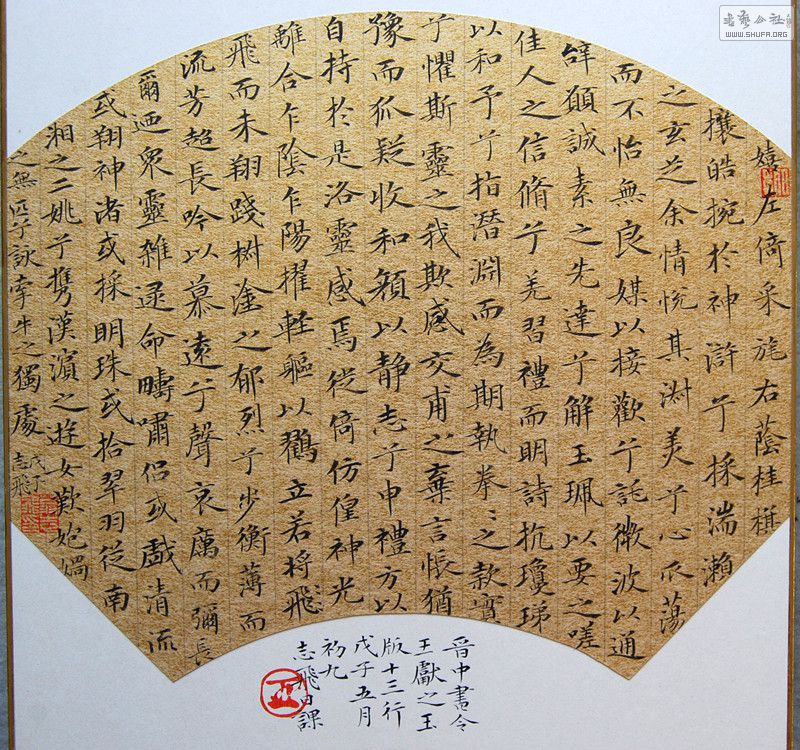 嬉左倚采旄右蔭桂旗
攘皓捥於神滸兮採湍瀨
之玄芝余情悅其淑美兮心蕩
而不怡無良媒以接歡兮託微波以通
辝願誠素之先達兮解玉珮以要之嗟
佳人之信脩兮羌習禮而明詩抗瓊珶
以和予兮指潛淵而為期執拳〻之款實
兮懼斯靈之我欺感交甫之棄言悵猶
豫而狐疑收和顏以静志兮申禮方以
自持於是洛靈感焉徙倚仿偟神光
離合乍陰乍陽擢輕軀以鶴立若將飛
飛而未翔踐椒塗之郁烈兮步衡薄而
流芳超長吟以慕遠兮聲哀厲而彌長
爾迺眾靈雜遝命疇嘯侶或戲清流
或翔神渚或採明珠或拾翠羽從南
湘之二姚兮攜漢濱之遊女歎匏媧
之無匹兮詠牽牛之獨處
戊子
志飛
晉中書令
王獻之玉
版十三行
戊子五月
初九
志飛日課
書藝公社
WWW.SHUFA.ORG